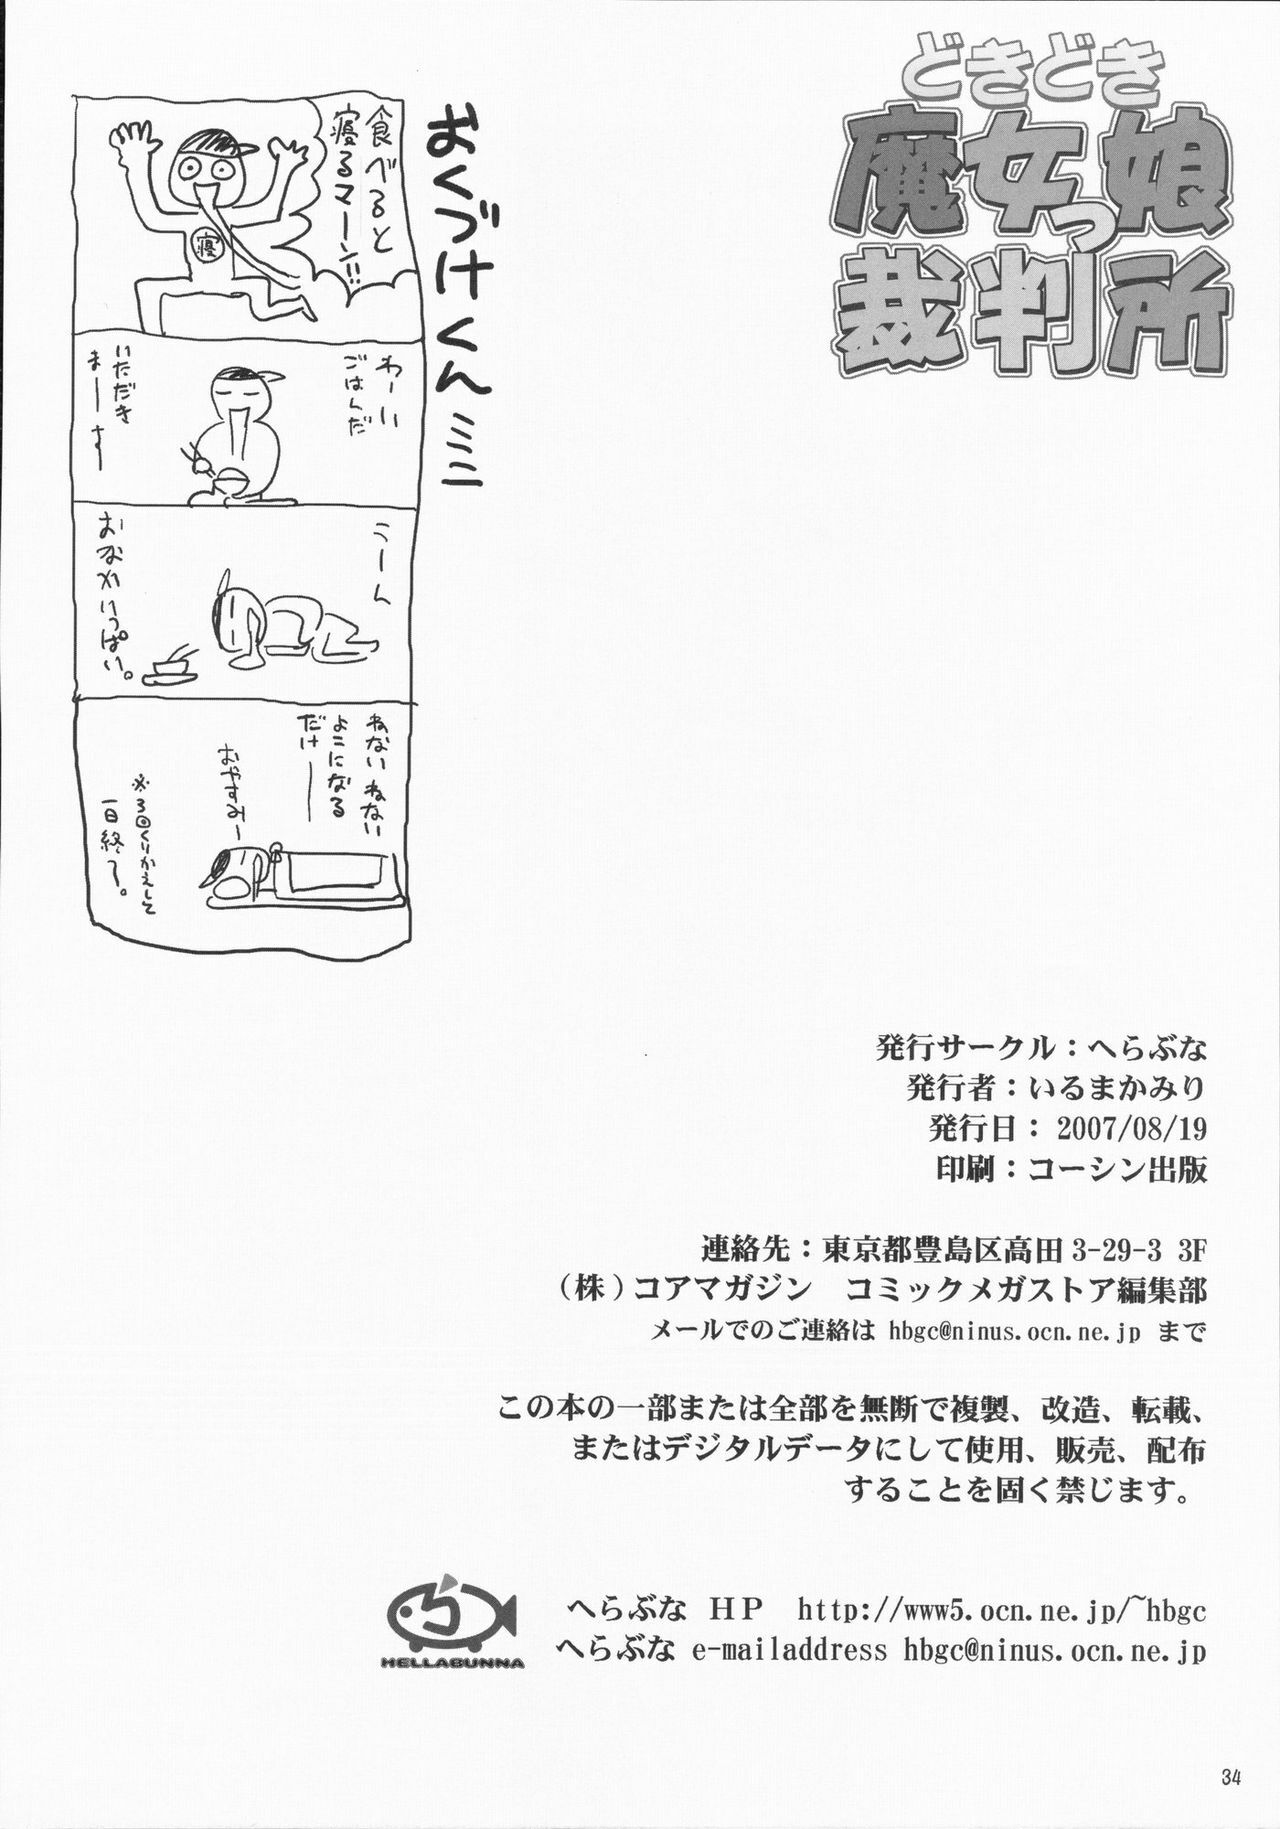 どきどき
魔女っ娘
裁判所
おくづけくん ミニ
食べると
寝るマーン!!
寝
わーい
ごはんだ
いただき
まーすー
うーん
おなかいっぱい。
ねないねない
よこになる
だけー
おやすみー
※3回くりかえして
一日終了。
発行サークル：へらぶな
発行者：いるまかみり
発行日： 2007/08/19
印刷：コーシン出版
連絡先：東京都豊島区高田 3-29-3 3F
（株）コアマガジン　コミックメガストア編集部
メールでのご連絡は hbgc@ninus.ocn.ne.jp まで
この本の一部または全部を無断で複製、改造、転載、
またはデジタルデータにして使用、販売、配布
することを固く禁じます。
へらぶな ＨＰ　http://www5.ocn.ne.jp/~hbgc
へらぶな e-mailaddress hbgc@ninus.ocn.ne.jp
HELLABUNNA
34